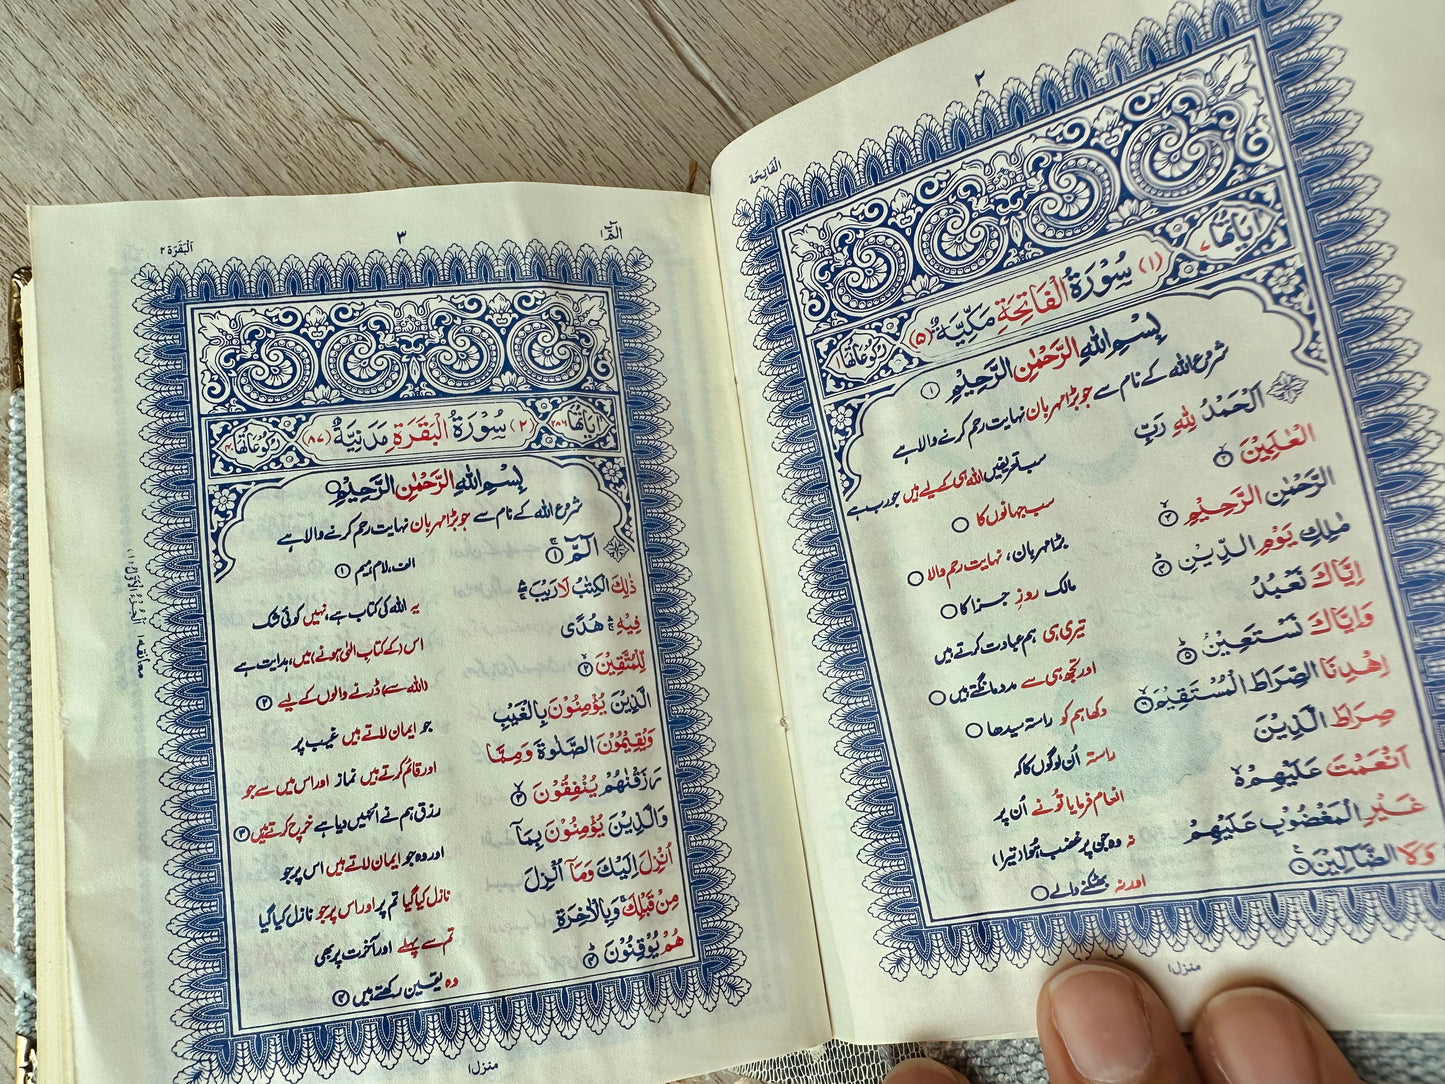 ٢
الْفَاتِحَة
اٰيَاتُهَا ٧
(١) سُوْرَةُ الْفَاتِحَةِ مَكِّيَّةٌ (٥)
رُكُوْعَاتُهَا
بِسْمِ اللّٰهِ الرَّحْمٰنِ الرَّحِيْمِ ١
شروع اللہ کے نام سے جو بڑا مہربان نہایت رحم کرنے والا ہے
اَلْحَمْدُ لِلّٰهِ رَبِّ
سب تعریفیں اللہ ہی کے لیے ہیں جو رب ہے
الْعٰلَمِيْنَ ٢
سب جہانوں کا
الرَّحْمٰنِ الرَّحِيْمِ ٣
بڑا مہربان، نہایت رحم والا
مٰلِكِ يَوْمِ الدِّيْنِ ٤
مالک روزِ جزا کا
اِيَّاكَ نَعْبُدُ
تیری ہی ہم عبادت کرتے ہیں
وَاِيَّاكَ نَسْتَعِيْنُ ٥
اور تجھ ہی سے مدد مانگتے ہیں
اِهْدِنَا الصِّرَاطَ الْمُسْتَقِيْمَ ٦
دکھا ہم کو راستہ سیدھا
صِرَاطَ الَّذِيْنَ
راستہ اُن لوگوں کا کہ
اَنْعَمْتَ عَلَيْهِمْ
انعام فرمایا تُو نے اُن پر
غَيْرِ الْمَغْضُوْبِ عَلَيْهِمْ
نہ وہ جن پر غضب ہُوا (تیرا)
وَلَا الضَّآلِّيْنَ
اور نہ بھٹکنے والے
منزل ١
الٓمّٓ ١
٣
اَلْبَقَرَة ٢
اٰيَاتُهَا ٢٨٦
(٢) سُوْرَةُ الْبَقَرَةِ مَدَنِيَّةٌ (٨٧)
رُكُوْعَاتُهَا ٤٠
بِسْمِ اللّٰهِ الرَّحْمٰنِ الرَّحِيْمِ
شروع اللہ کے نام سے جو بڑا مہربان نہایت رحم کرنے والا ہے
الٓمّٓ ١
الف، لام، میم ١
ذٰلِكَ الْكِتٰبُ لَا رَيْبَ
یہ اللہ کی کتاب ہے، نہیں کوئی شک
فِيْهِ هُدًى
اس (کے کتابِ الٰہی ہونے) میں، ہدایت ہے
لِّلْمُتَّقِيْنَ ٢
(اللہ سے) ڈرنے والوں کے لیے ٢
الَّذِيْنَ يُؤْمِنُوْنَ بِالْغَيْبِ
جو ایمان لاتے ہیں غیب پر
وَيُقِيْمُوْنَ الصَّلٰوةَ وَمِمَّا
اور قائم کرتے ہیں نماز اور اس میں سے جو
رَزَقْنٰهُمْ يُنْفِقُوْنَ ٣
رزق ہم نے انہیں دیا ہے خرچ کرتے ہیں ٣
وَالَّذِيْنَ يُؤْمِنُوْنَ بِمَآ
اور وہ جو ایمان لاتے ہیں اس پر جو
اُنْزِلَ اِلَيْكَ وَمَآ اُنْزِلَ
نازل کیا گیا تم پر اور اس پر جو نازل کیا گیا
مِنْ قَبْلِكَ وَبِالْاٰخِرَةِ
تم سے پہلے اور آخرت پر بھی
هُمْ يُوْقِنُوْنَ ٤
وہ یقین رکھتے ہیں ٤
معانقه ١
اَلْجُزْءُ الْاَوَّلُ (١)
منزل ١